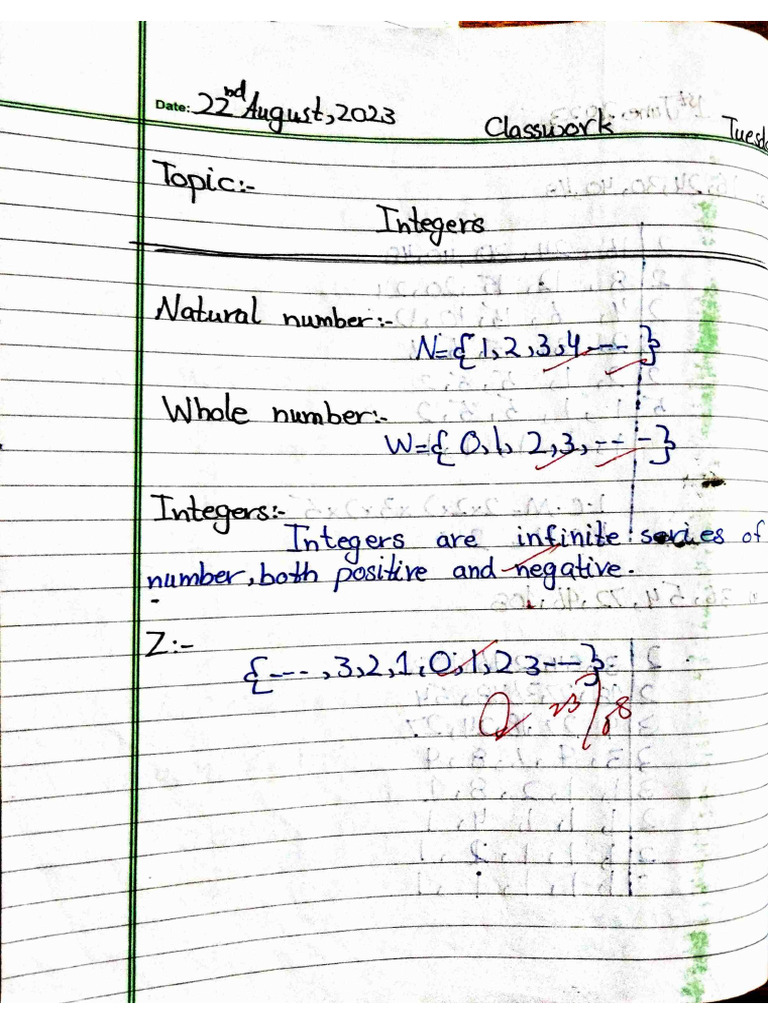 Date: 22nd August, 2023 Classwork
Topic:-
Integers
Natural number:-
N={1,2,3,4,---}
Whole number:-
W={0,1,2,3,---}
Integers:-
Integers are infinite series of
number, both positive and negative.
Z:-
{---,3,2,1,0,1,2 3---}
23/08